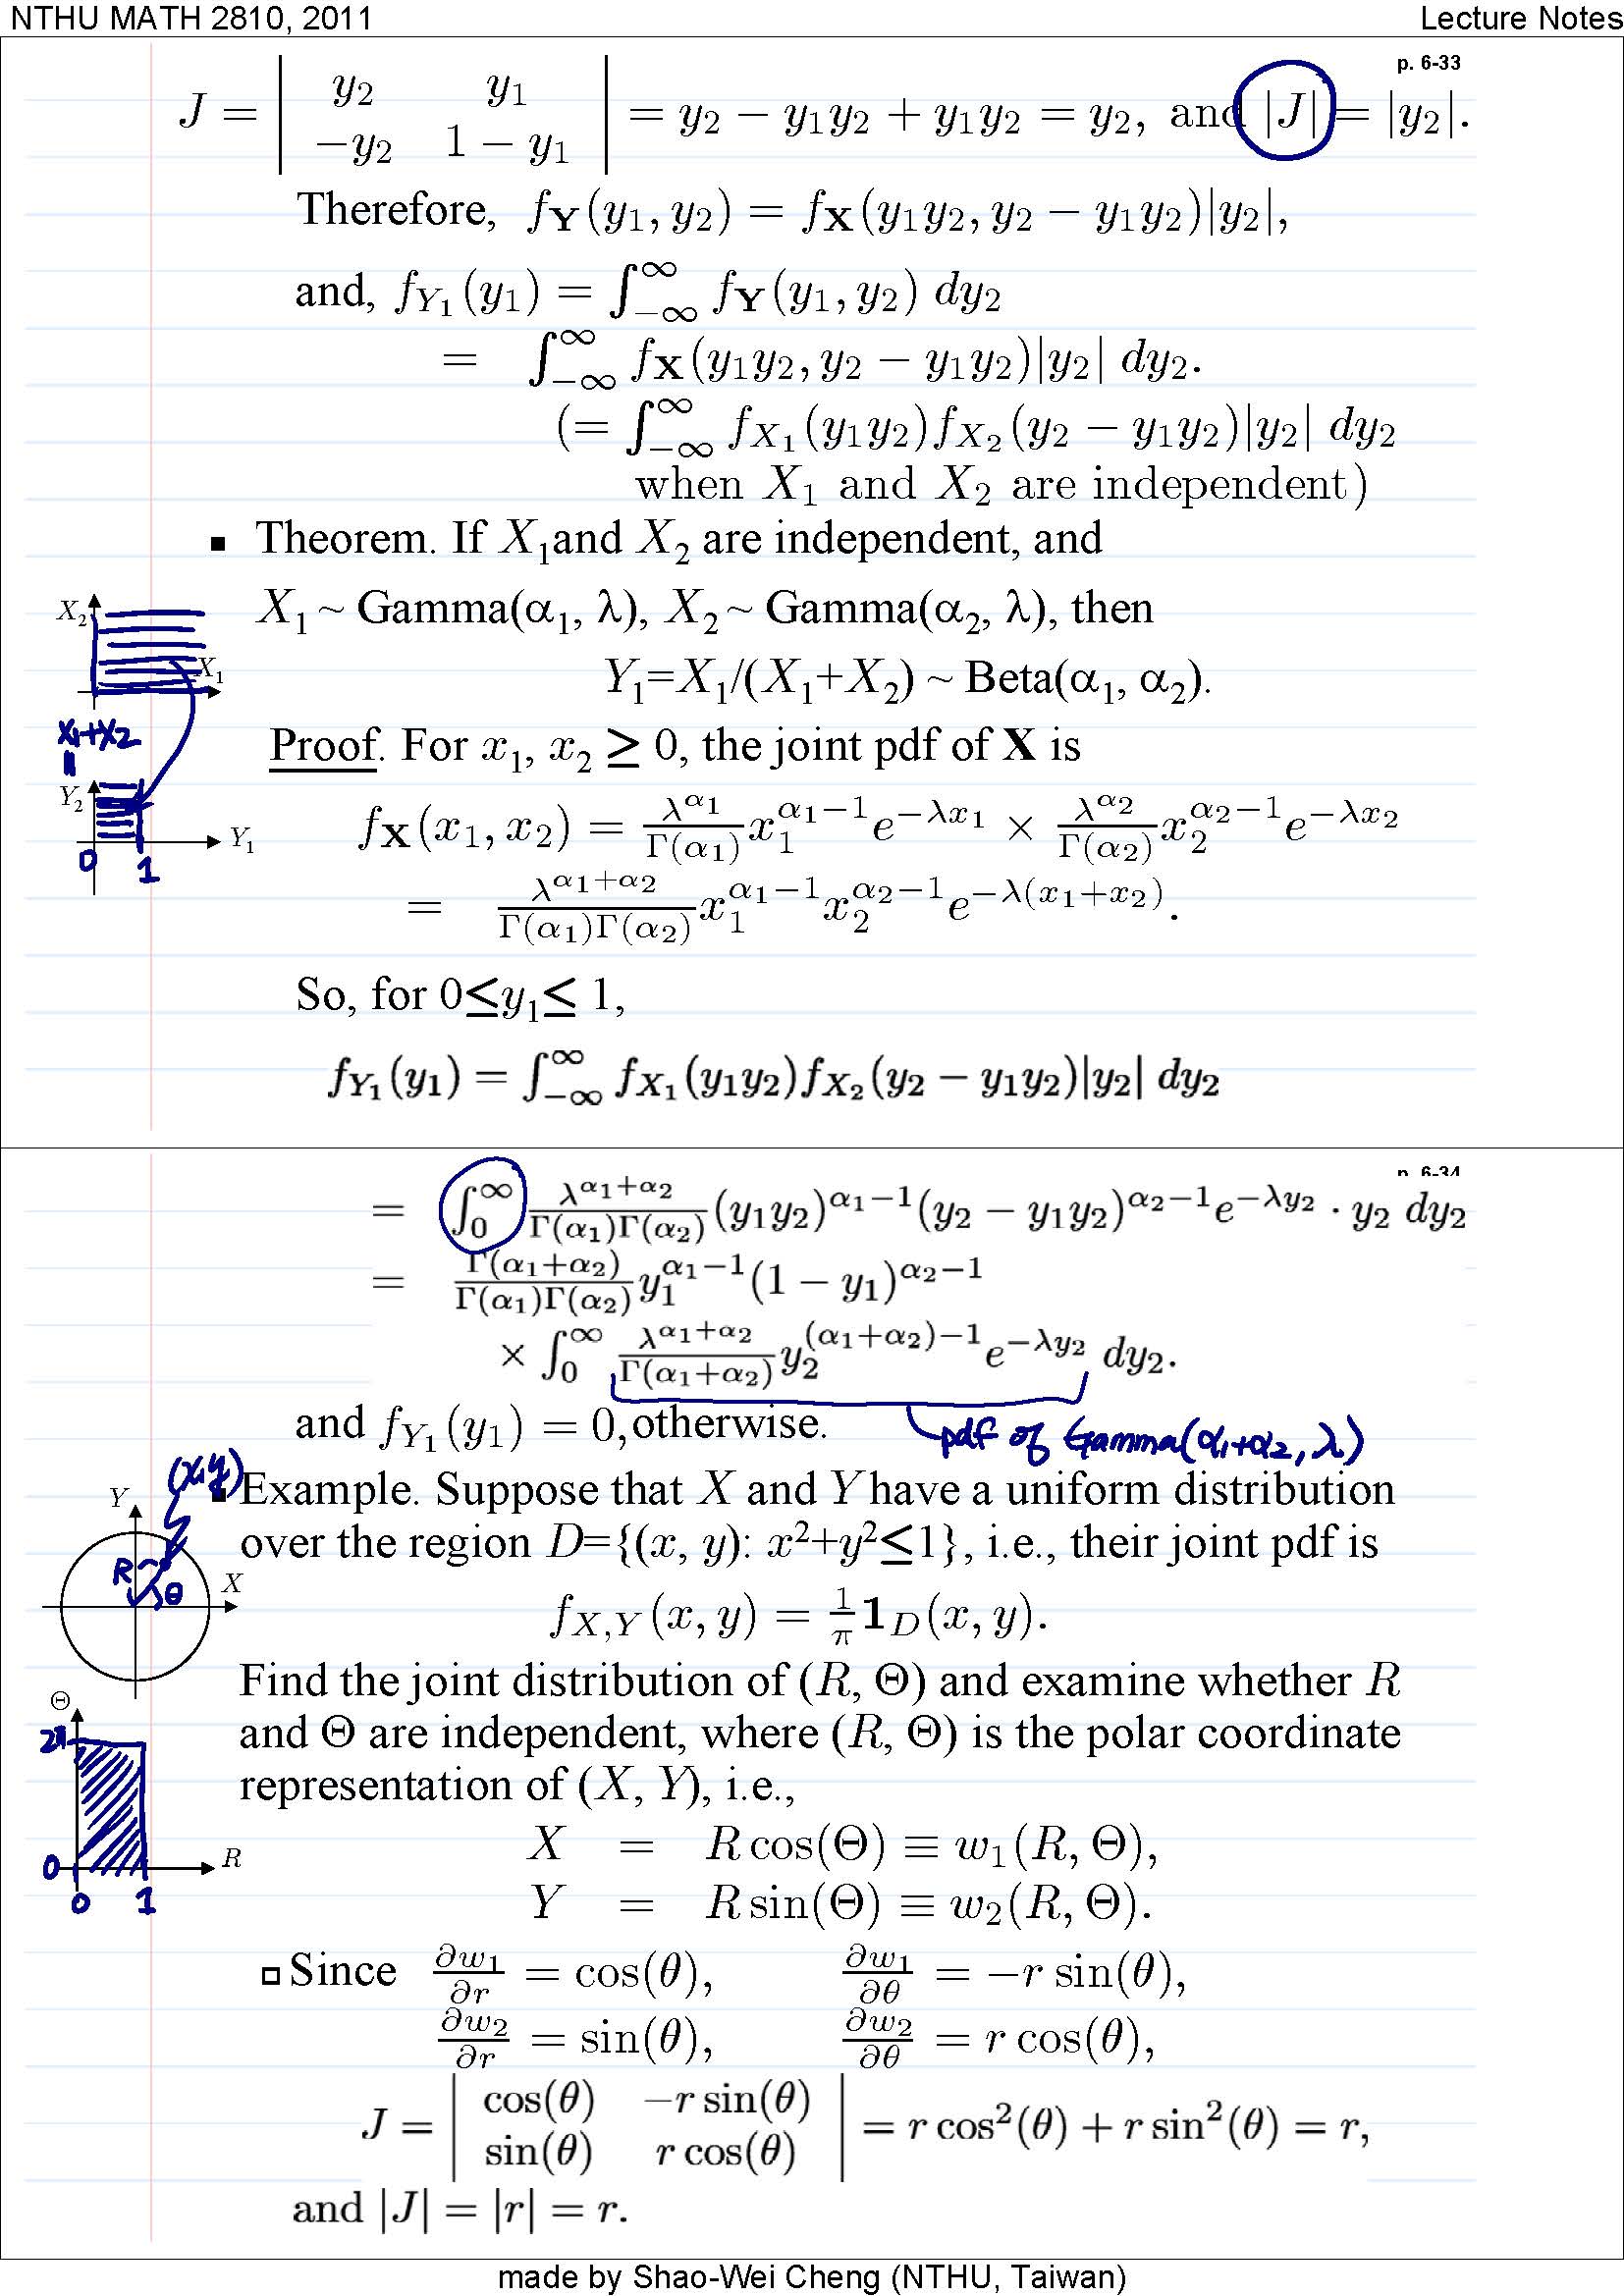 NTHU MATH 2810, 2011
Lecture Notes
p. 6-33
J = | y₂ y₁ ; −y₂ 1 − y₁ | = y₂ − y₁y₂ + y₁y₂ = y₂, and |J| = |y₂|.
Therefore, f_𝐘(y₁, y₂) = f_𝐗(y₁y₂, y₂ − y₁y₂)|y₂|,
and, f_{Y₁}(y₁) = ∫_{−∞}^{∞} f_𝐘(y₁, y₂) dy₂
= ∫_{−∞}^{∞} f_𝐗(y₁y₂, y₂ − y₁y₂)|y₂| dy₂.
(= ∫_{−∞}^{∞} f_{X₁}(y₁y₂) f_{X₂}(y₂ − y₁y₂)|y₂| dy₂
when X₁ and X₂ are independent)
▪ Theorem. If X₁and X₂ are independent, and
X₁ ~ Gamma(α₁, λ), X₂ ~ Gamma(α₂, λ), then
Y₁=X₁/(X₁+X₂) ~ Beta(α₁, α₂).
X₂
X₁
x₁+x₂
=
Y₂
Y₁
0
1
Proof. For x₁, x₂ ≥ 0, the joint pdf of 𝐗 is
f_𝐗(x₁, x₂) = λ^{α₁}/Γ(α₁) x₁^{α₁−1} e^{−λx₁} × λ^{α₂}/Γ(α₂) x₂^{α₂−1} e^{−λx₂}
= λ^{α₁+α₂}/(Γ(α₁)Γ(α₂)) x₁^{α₁−1} x₂^{α₂−1} e^{−λ(x₁+x₂)}.
So, for 0≤y₁≤ 1,
f_{Y₁}(y₁) = ∫_{−∞}^{∞} f_{X₁}(y₁y₂) f_{X₂}(y₂ − y₁y₂)|y₂| dy₂
p. 6-34
= ∫_0^∞ λ^{α₁+α₂}/(Γ(α₁)Γ(α₂)) (y₁y₂)^{α₁−1} (y₂ − y₁y₂)^{α₂−1} e^{−λy₂} · y₂ dy₂
= Γ(α₁+α₂)/(Γ(α₁)Γ(α₂)) y₁^{α₁−1} (1 − y₁)^{α₂−1}
× ∫_0^∞ λ^{α₁+α₂}/Γ(α₁+α₂) y₂^{(α₁+α₂)−1} e^{−λy₂} dy₂.
and f_{Y₁}(y₁) = 0, otherwise.
pdf of Gamma(α₁+α₂, λ)
▪ Example. Suppose that X and Y have a uniform distribution
over the region D={(x, y): x²+y²≤1}, i.e., their joint pdf is
f_{X,Y}(x, y) = 1/π 𝟏_D(x, y).
(x,y)
Y
R
θ
X
Find the joint distribution of (R, Θ) and examine whether R
and Θ are independent, where (R, Θ) is the polar coordinate
representation of (X, Y), i.e.,
X = R cos(Θ) ≡ w₁(R, Θ),
Y = R sin(Θ) ≡ w₂(R, Θ).
Θ
2π
0
R
0
1
▫ Since ∂w₁/∂r = cos(θ), ∂w₁/∂θ = −r sin(θ),
∂w₂/∂r = sin(θ), ∂w₂/∂θ = r cos(θ),
J = | cos(θ) −r sin(θ) ; sin(θ) r cos(θ) | = r cos²(θ) + r sin²(θ) = r,
and |J| = |r| = r.
made by Shao-Wei Cheng (NTHU, Taiwan)